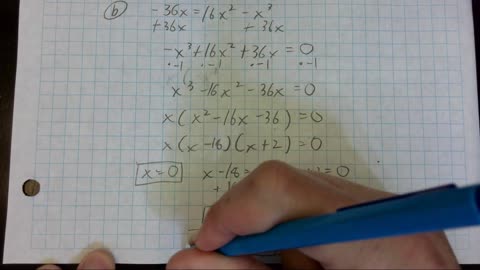 b -36x = 16x² - x³
+36x +36x
-x³ + 16x² + 36x = 0
·-1 ·-1 ·-1 ·-1
x³ - 16x² - 36x = 0
x(x² - 16x - 36) = 0
x(x - 18)(x + 2) = 0
x = 0 x - 18 = = 0
+